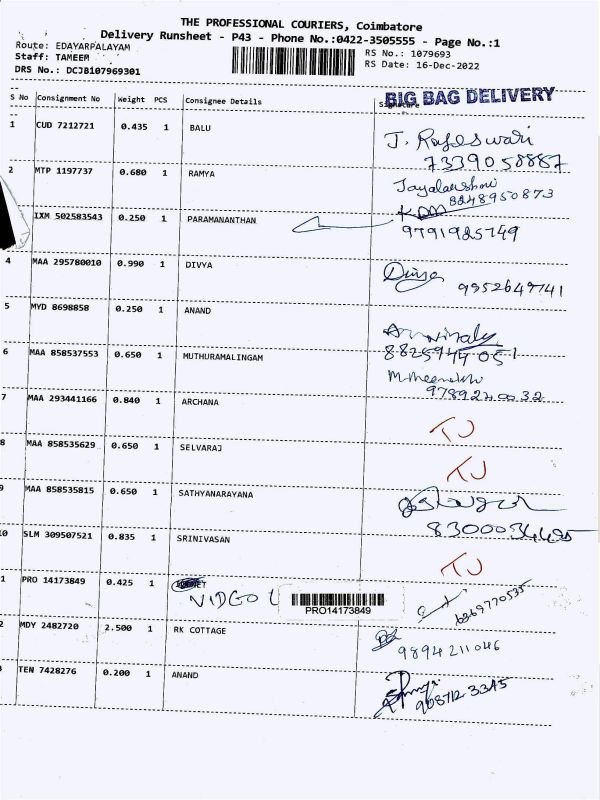 THE PROFESSIONAL COURIERS, Coimbatore
Delivery Runsheet - P43 - Phone No.:0422-3505555 - Page No.:1
Route: EDAYARPALAYAM
RS No.: 1079693
Staff: TAMEEM
RS Date: 16-Dec-2022
DRS No.: DCJB107969301
S No Consignment No Weight PCS Consignee Details Signature
BIG BAG DELIVERY
1 CUD 7212721 0.435 1 BALU
J. Rajeswari
7339058887
2 MTP 1197737 0.680 1 RAMYA
8248950873
IXM 502583543 0.250 1 PARAMANANTHAN
9791925749
4 MAA 295780010 0.990 1 DIVYA
Divya 9952647741
5 MYD 8698858 0.250 1 ANAND
6 MAA 858537553 0.650 1 MUTHURAMALINGAM
7 MAA 293441166 0.840 1 ARCHANA
TJ
8 MAA 858535629 0.650 1 SELVARAJ
TJ
9 MAA 858535815 0.650 1 SATHYANARAYANA
10 SLM 309507521 0.835 1 SRINIVASAN
TJ
1 PRO 14173849 0.425 1
PRO14173849
2 MDY 2482720 2.500 1 RK COTTAGE
9894211046
TEN 7428276 0.200 1 ANAND